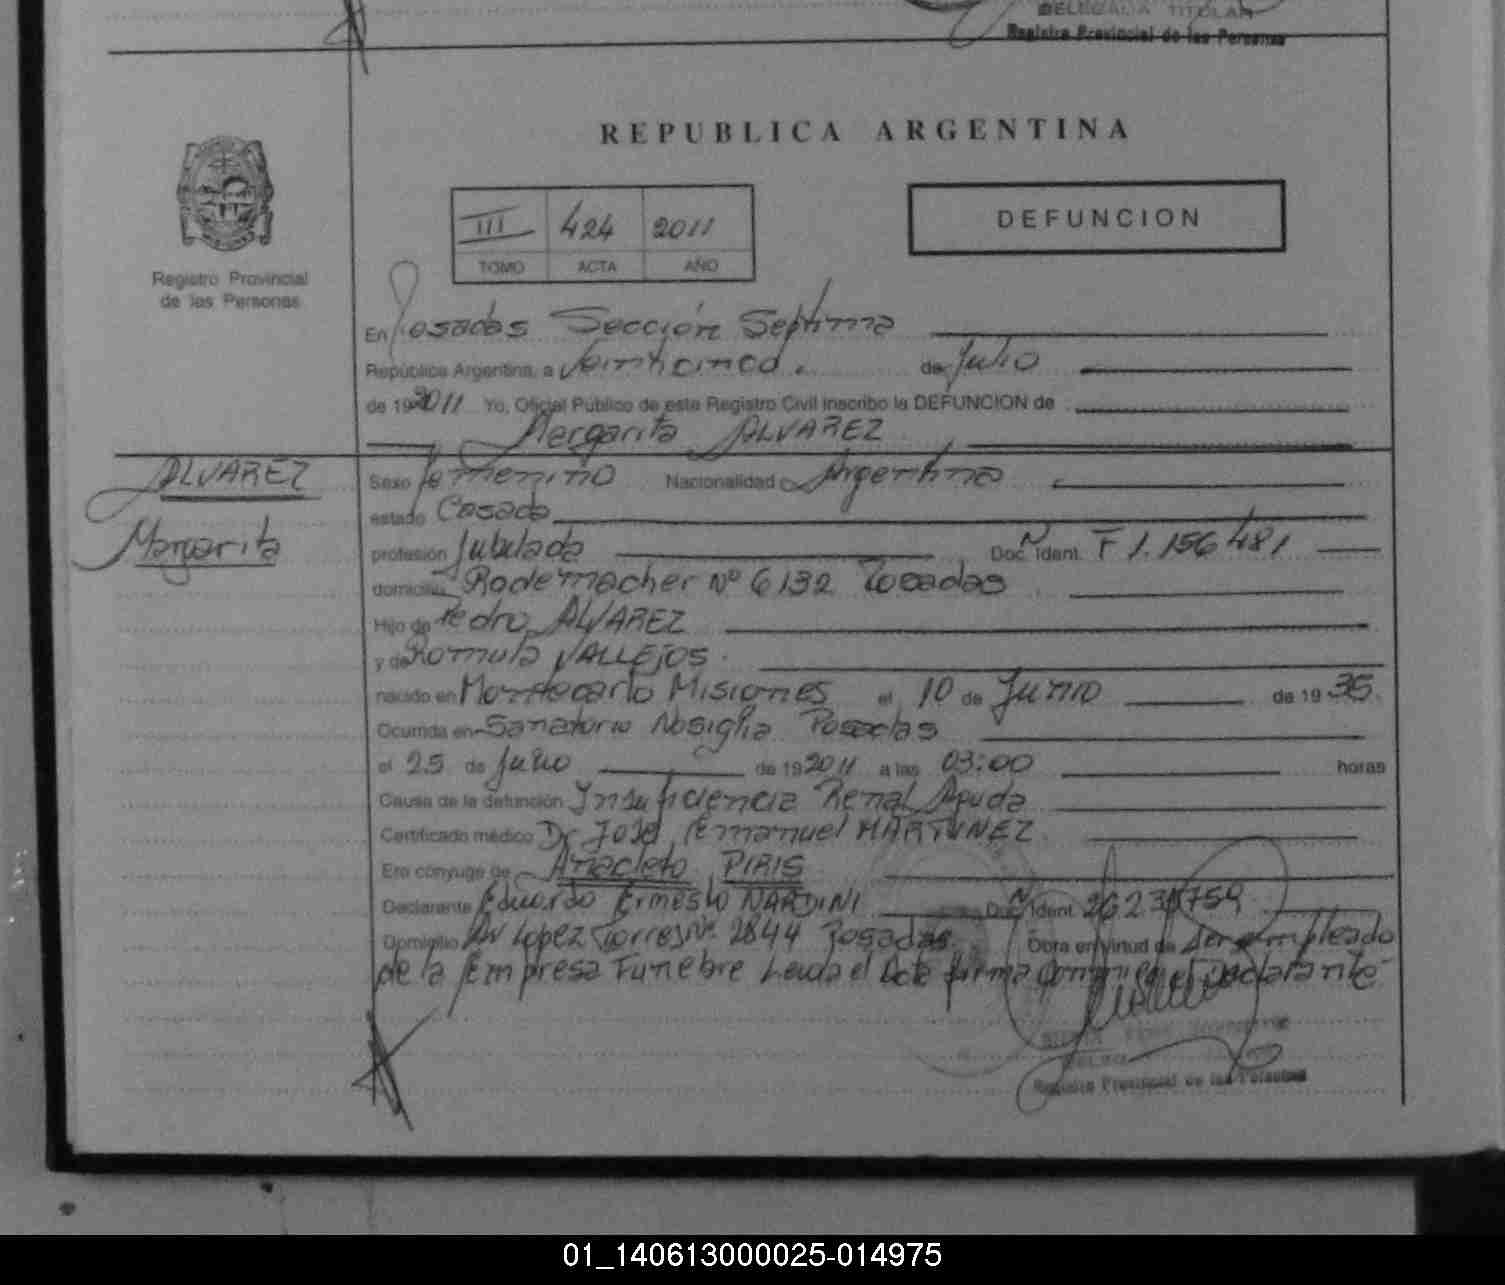 DELEGADA TITULAR
Registro Provincial de las Personas
REPUBLICA ARGENTINA
III 424 2011
TOMO ACTA AÑO
DEFUNCION
Registro Provincial
de las Personas
En Posadas Sección Septima
República Argentina, a Veinticinco de Julio
de 19 2011 Yo, Oficial Público de este Registro Civil inscribo la DEFUNCION de
Margarita ALVAREZ
ALVAREZ
Margarita
Sexo femenino Nacionalidad Argentina
estado Casada
profesión Jubilada Doc. Ident. Nº F 1.156481
domicilio Rademacher Nº 6132 Posadas
Hijo de Pedro ALVAREZ
y de Romula VALLEJOS
nacido en Montecarlo Misiones el 10 de Junio de 19 35
Ocurrida en Sanatorio Nosiglia Posadas
el 25 de Julio de 19 2011 a las 03:00 horas
Causa de la defunción Insuficiencia Renal Aguda
Certificado médico Dr José Emmanuel MARTINEZ
Era cónyuge de Anacleto PIRIS
Declarante Eduardo Ernesto NARDINI Doc. Ident. Nº
Domicilio Av Lopez Torres Nº 2844 Posadas Obra en virtud de ser empleado
de la Empresa Funebre Leida el Acta firma conmigo el Declarante
Registro Provincial de las Personas
01_140613000025-014975